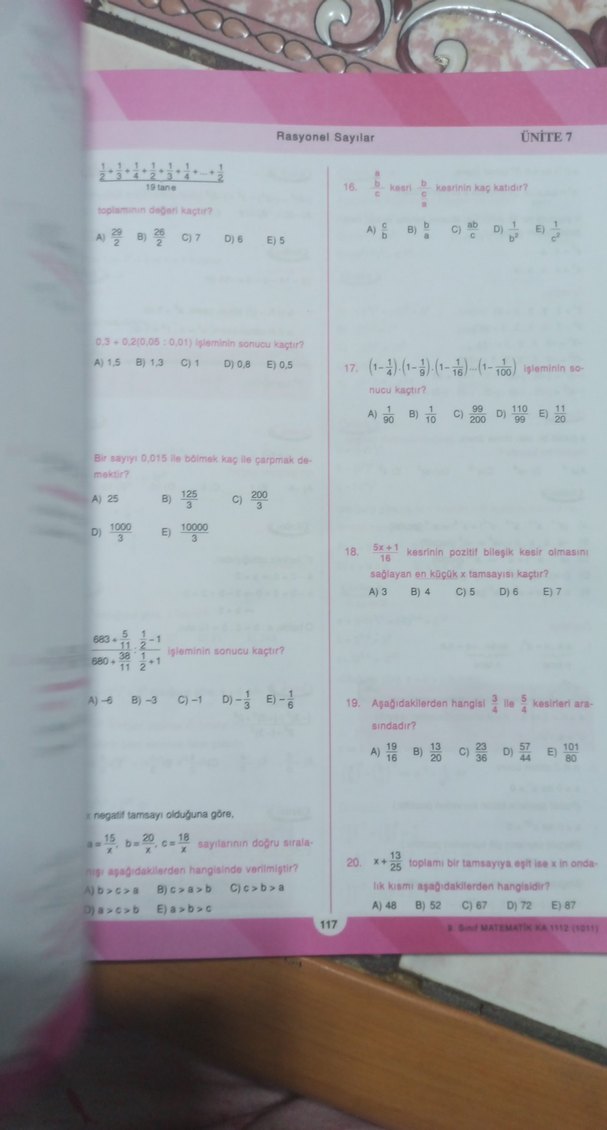 Rasyonel Sayılar
ÜNİTE 7
1/2 + 1/3 + 1/4 + 1/2 + 1/3 + 1/4 + ... + 1/2
19 tane
toplamının değeri kaçtır?
A) 29/2 B) 26/2 C) 7 D) 6 E) 5
0,3 + 0,2(0,05 : 0,01) işleminin sonucu kaçtır?
A) 1,5 B) 1,3 C) 1 D) 0,8 E) 0,5
Bir sayıyı 0,015 ile bölmek kaç ile çarpmak de-
mektir?
A) 25 B) 125/3 C) 200/3
D) 1000/3 E) 10000/3
(683 + 5/11)/(680 + 38/11) : (1/2 - 1)/(1/2 + 1) işleminin sonucu kaçtır?
A) -6 B) -3 C) -1 D) -1/3 E) -1/6
x negatif tamsayı olduğuna göre,
a = 15/x, b = 20/x, c = 18/x sayılarının doğru sırala-
nışı aşağıdakilerden hangisinde verilmiştir?
A) b > c > a B) c > a > b C) c > b > a
D) a > c > b E) a > b > c
16. a/b/c kesri b/c/a kesrinin kaç katıdır?
A) c/b B) b/a C) ab/c D) 1/b² E) 1/c²
17. (1 - 1/4).(1 - 1/9).(1 - 1/16)...(1 - 1/100) işleminin so-
nucu kaçtır?
A) 1/90 B) 1/10 C) 99/200 D) 110/99 E) 11/20
18. 5x + 1/16 kesrinin pozitif bileşik kesir olmasını
sağlayan en küçük x tamsayısı kaçtır?
A) 3 B) 4 C) 5 D) 6 E) 7
19. Aşağıdakilerden hangisi 3/4 ile 5/4 kesirleri ara-
sındadır?
A) 19/16 B) 13/20 C) 23/36 D) 57/44 E) 101/80
20. x + 13/25 toplamı bir tamsayıya eşit ise x in onda-
lık kısmı aşağıdakilerden hangisidir?
A) 48 B) 52 C) 67 D) 72 E) 87
117
9. Sınıf MATEMATİK KA 1112 (1011)